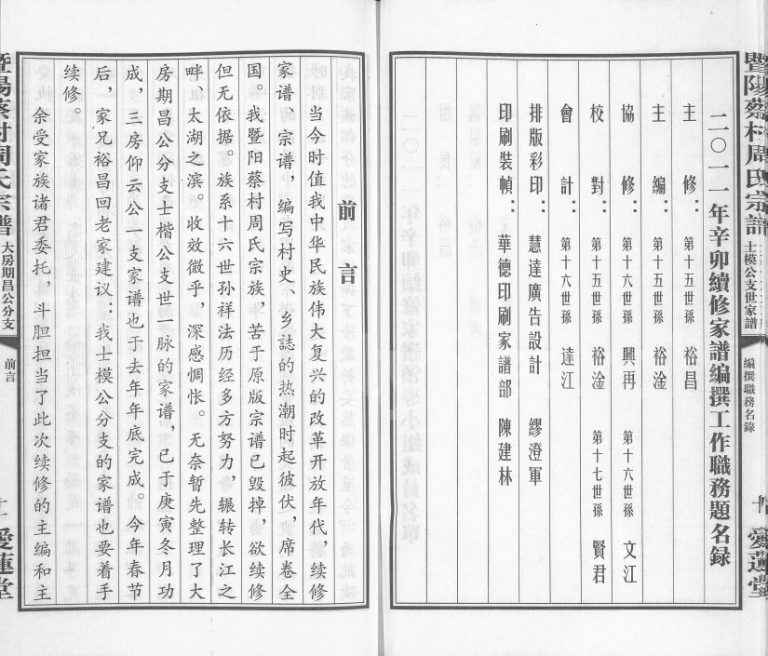 二〇一一年辛卯續修家譜編撰工作職務題名錄
主　修：第十五世孫　裕昌
主　編：第十五世孫　裕淦
協　修：第十六世孫　興再　第十六世孫　文江
校　對：第十五世孫　裕淦　第十七世孫　賢君
會　計：第十六世孫　達江
排版彩印：慧達廣告設計　繆澄軍
印刷裝幀：華德印刷家譜部　陳建林
暨陽蔡村周氏宗譜
士模公支世家譜
編撰職務名錄
十
愛蓮堂
前言
当今时值我中华民族伟大复兴的改革开放年代，续修
家谱、宗谱，编写村史、乡誌的热潮时起彼伏，席卷全
国。我暨阳蔡村周氏宗族，苦于原版宗谱已毁掉，欲续修
但无依据。族系十六世孙祥法历经多方努力，辗转长江之
畔、太湖之滨。收效微乎，深感惆怅。无奈暂先整理了大
房期昌公分支士楷公支世一脉的家谱，已于庚寅冬月功
成，三房仰云公一支家谱也于去年年底完成。今年春节
后，家兄裕昌回老家建议：我士模公分支的家谱也要着手
续修。
余受家族诸君委托，斗胆担当了此次续修的主编和主
暨陽蔡村周氏宗譜
大房期昌公分支
前言
十一
愛蓮堂